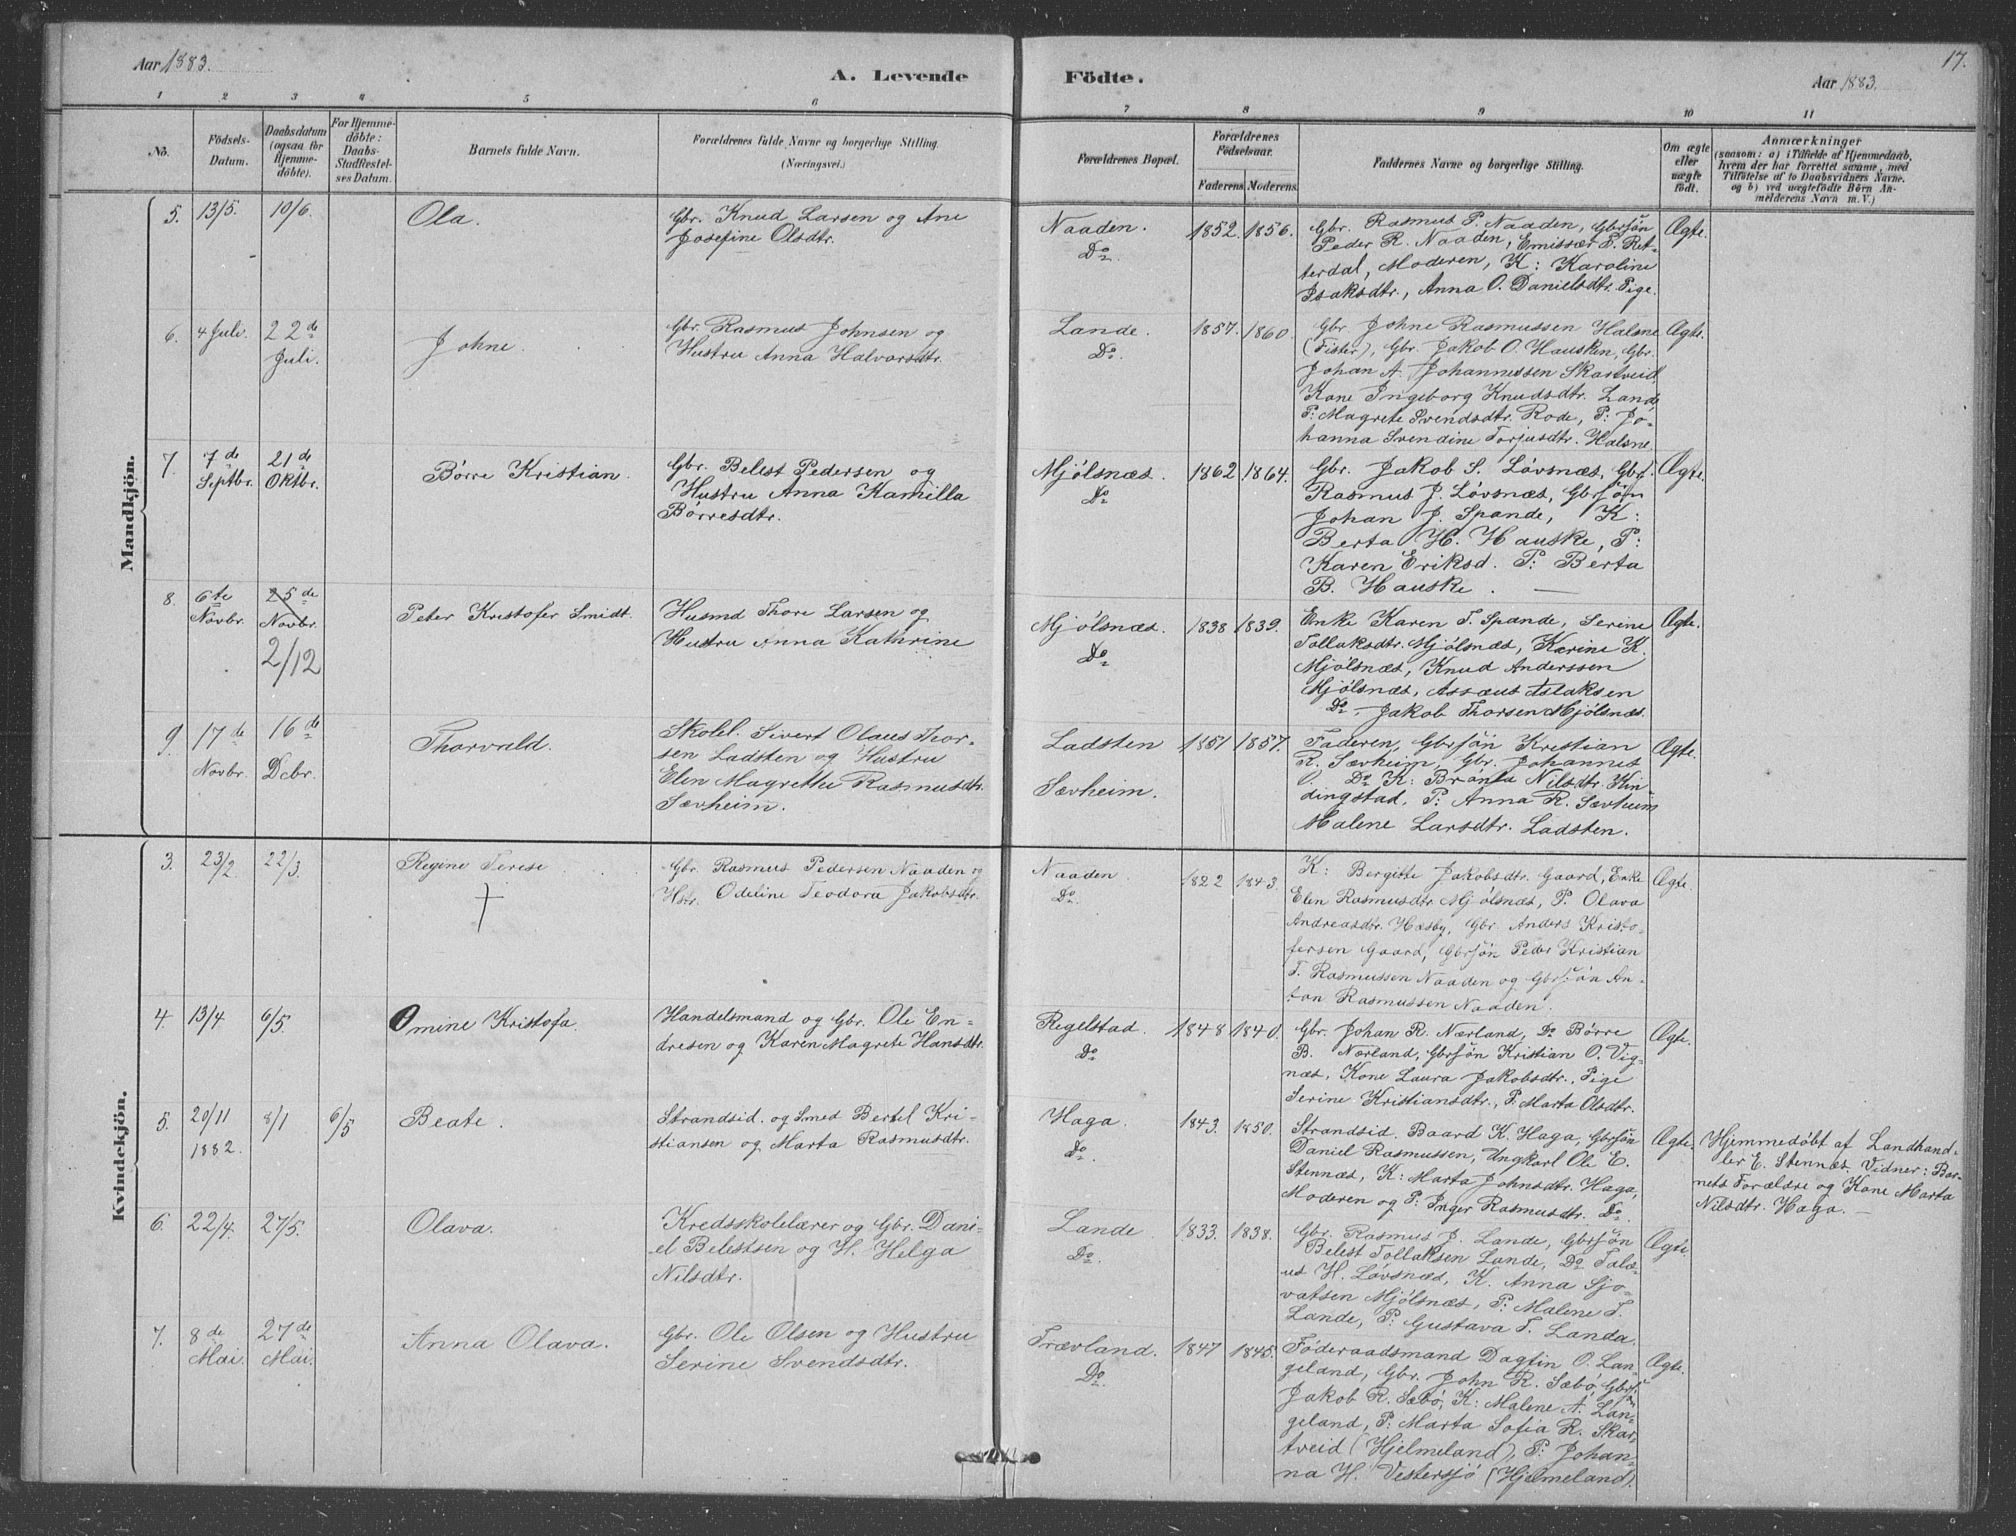 Aar 1883.
A. Levende
Födte.
Aar 1883.
17.
1 2 3 4 5 6 7 8 9 10 11
No.
Födsels-
Datum.
Daabsdatum
(ogsaa for
Hjemme-
döbte).
For Hjemme-
döbte:
Daabs-
Stadfæstel-
ses Datum.
Barnets fulde Navn.
Forældrenes fulde Navne og borgerlige Stilling.
(Næringsvei.)
Forældrenes Bopæl.
Forældrenes
Födselsaar.
Faderens. Moderens.
Faddernes Navne og borgerlige Stilling.
Om ægte
eller
uægte
födt.
Anmærkninger
(saasom: a) i Tilfælde af Hjemmedaab,
hvem der har forrettet samme, med
Tilföielse af to Daabsvidners Navne,
og b) ved uægtefödte Börn An-
melderens Navn m. V.)
Mandkjön.
5. 13/5. 10/6.
Ola.
Gbr. Knud Larsen og Ane
Josefine Olsdtr.
Naaden.
Do
1852. 1856.
Gbr. Rasmus P. Naaden, Gbrsøn
Peder R. Naaden, Emissær P. Ret-
terdal, Moderen, K: Karoline
Isaksdtr., Anna O. Danielsdtr. Pige.
Ægte.
6. 4 Juli. 22de
Juli.
Johne.
Gbr. Rasmus Johnsen og
Hustru Anna Halvorsdtr.
Lande.
Do.
1857. 1860.
Gbr Johne Rasmussen Halsne
(Fister), Gbr. Jakob O. Hausken, Gbr.
Johan A. Johannessen Skartveid,
Kone Ingeborg Knudsdtr. Lande,
P: Magrete Svendsdtr. Rode, P: Jo-
hanna Svendine Torjusdtr. Halsne.
Ægte.
7. 7de
Septbr. 21de
Oktbr.
Børre Kristian.
Gbr. Belest Pedersen og
Hustru Anna Kamilla
Børresdtr.
Mjølsnæs.
Do
1862 1864.
Gbr. Jakob S. Løvsnæs, Gbr.
Rasmus J. Løvsnæs, Gbrsøn
Johan J. Spande, K:
Berta H. Hauske, P:
Karen Eriksd. P: Berta
B. Hauske.
Ægte.
8. 6te
Novbr. 25de
Novbr.
2/12
Peter Kristofer Smidt.
Husmd Thore Larsen og
Hustru Anna Kathrine
Mjølsnæs.
Do
1838 1839.
Enke Karen T. Spande, Serine
Tollaksdtr. Mjølsnæs, Karine K.
Mjølsnæs, Knud Anderssen
Mjølsnæs, Assæus Aslaksen
Do, Jakob Thorsen Mjølsnæs.
Ægte.
9. 17de
Novbr. 16de
Dcbr.
Thorvald.
Skolel. Sivert Olaus Thor-
sen Ladsten og Hustru
Elen Magrethe Rasmusdtr.
Sævheim.
Ladsten
Sævheim.
1851 1857.
Faderen, Gbrsøn Kristian
R. Sævheim, Gbr. Johannes
O. Do K: Brønla Nilsdtr. Kin-
dingstad, P: Anna R. Sævheim
Malene Larsdtr. Ladsten.
Ægte.
Kvindekjön.
3. 23/2 22/3.
Regine Terese
†
Gbr. Rasmus Pedersen Naaden og
Hstr. Odeline Teodora Jakobsdtr.
Naaden.
Do.
1822 1843.
K: Bergitte Jakobsdtr. Gaard, Enke
Elen Rasmusdtr. Mjølsnæs, P. Olava
Andreasdtr. Hæsby, Gbr. Anders Kristo-
fersen Gaard, Gbrsøn Peder Kristian
T. Rasmussen Naaden og Gbrsøn An-
ton Rasmussen Naaden.
Ægte.
4. 13/4 6/5.
Omine Kristofa.
Handelsmand og Gbr. Ole En-
dresen og Karen Magrete Hansdtr.
Regelstad.
Do
1848 1840.
Gbr. Johan R. Nærland, Do Børre
B. Nærland, Gbrsøn Kristian O. Vig-
næs, Kone Laura Jakobsdtr., Pige
Serine Kristiansdtr., P. Marta Olsdtr.
Ægte.
5. 20/11
1882. 8/1 6/5
Beate.
Strandsid. og Smed Bertel Kri-
stiansen og Marta Rasmusdtr.
Haga.
Do.
1843. 1850.
Strandsid. Baard K. Haga, Gbrsøn
Daniel Rasmussen, Ungkarl Ole E.
Stennæs, K: Marta Johnsdtr. Haga,
Moderen og P: Inger Rasmusdtr. Do.
Ægte.
Hjemmedøbt af Landhand-
ler E. Stennæs. Vidner: Bar-
nets Forældre og Kone Marta
Nilsdtr. Haga. —
6. 22/4. 27/5.
Olava.
Kredsskolelærer og Gbr. Dani-
el Belestsen og H. Helga
Nilsdtr.
Lande
Do.
1833. 1838.
Gbr. Rasmus J. Lande, Gbrsøn
Belest Tollaksen Lande, Do Talæ-
us H. Løvsnæs, K. Anna Sjo-
vatsen Mjølsnæs, P: Malene T.
Lande, P: Gustava T. Landa.
Ægte
7. 8de
Mai. 27de
Mai.
Anna Olava.
Gbr. Ole Olsen og Hustru
Serine Svendsdtr.
Trævland.
Do.
1847 1845.
Føderaadsmand Dagfin O. Lan-
geland, Gbr. John R. Sæbø, Gbrsøn
Jakob R. Sæbø, K: Malene A. Lan-
geland, P: Marta Sofia R. Skar-
tveid (Hjelmeland), P: Johan-
na H. Vestersjø (Hjelmeland).
Ægte.